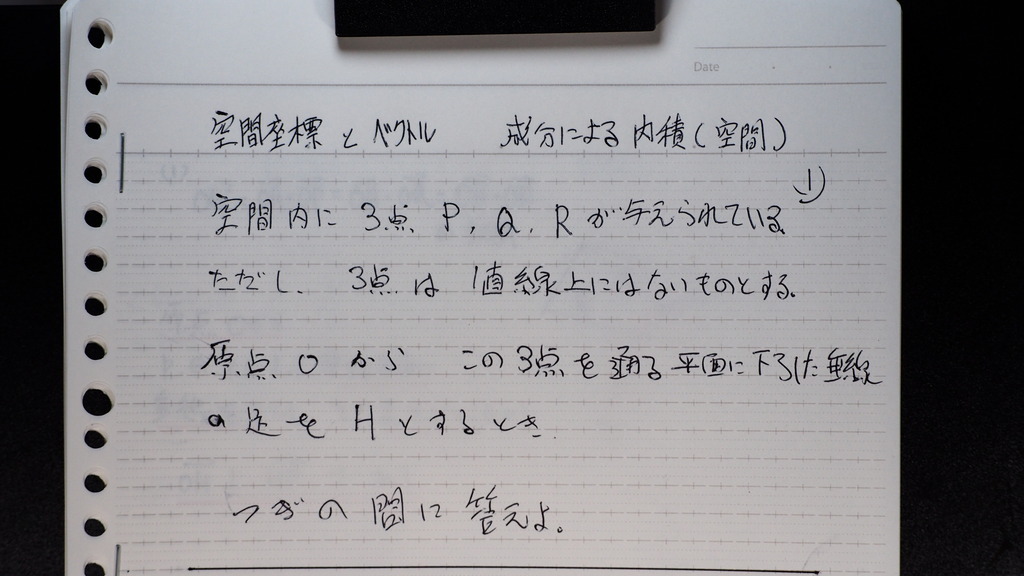 Date
空間座標とベクトル 成分による内積(空間)
1
空間内に 3点 P, Q, R が与えられている。
ただし、3点は 1直線上にはないものとする。
原点 O から この3点を通る平面に下ろした垂線
の足を H とするとき
つぎの問に答えよ。